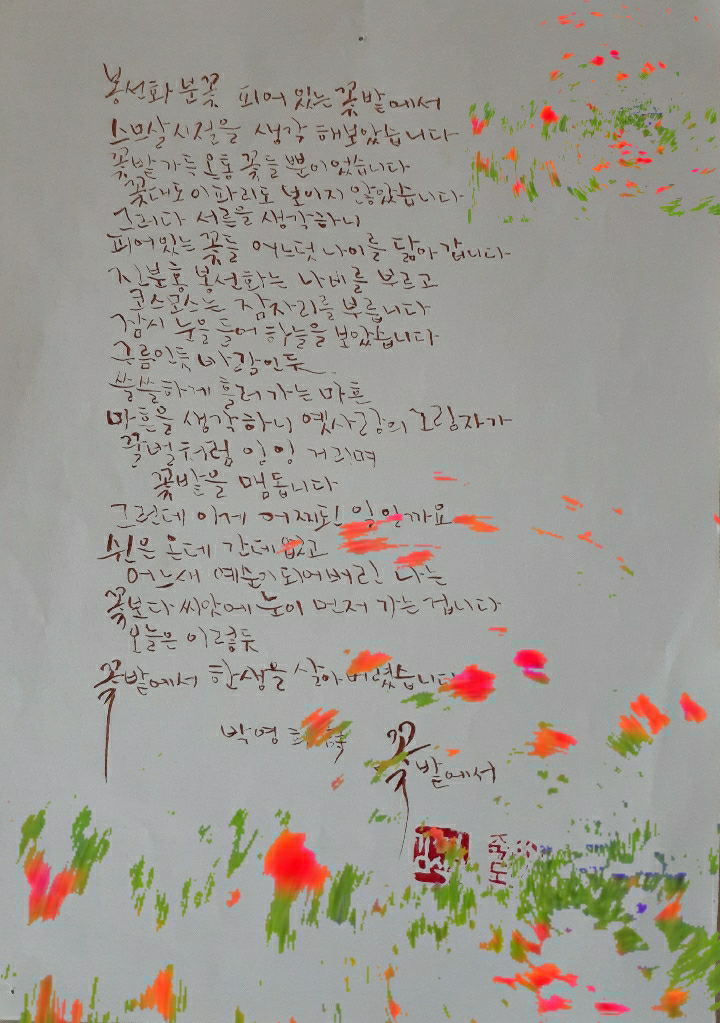 봉선화 분꽃 피어 있는 꽃밭에서
스무살 시절을 생각 해보았습니다
꽃밭 가득 온통 꽃들 뿐이었습니다
꽃대도 이파리도 보이지 않았습니다
그러다 서른을 생각하니
피어있는 꽃들 어느덧 나이를 닮아 갑니다
진분홍 봉선화는 나비를 부르고
코스모스는 잠자리를 부릅니다
잠시 눈을 들어 하늘을 보았습니다
구름인듯 바람인듯
쓸쓸하게 흘러가는 마흔
마흔을 생각하니 옛사랑의 그림자가
꿀벌처럼 잉잉 거리며
꽃밭을 맴돕니다
그런데 이게 어찌된 일일까요
쉰은 온데 간데 없고
어느새 예순이 되어버린 나는
꽃보다 씨앗에 눈이 먼저 가는 겁니다
오늘은 이렇듯
꽃밭에서 한생을 살아버렸습니다
박영희 詩
꽃밭에서
죽도